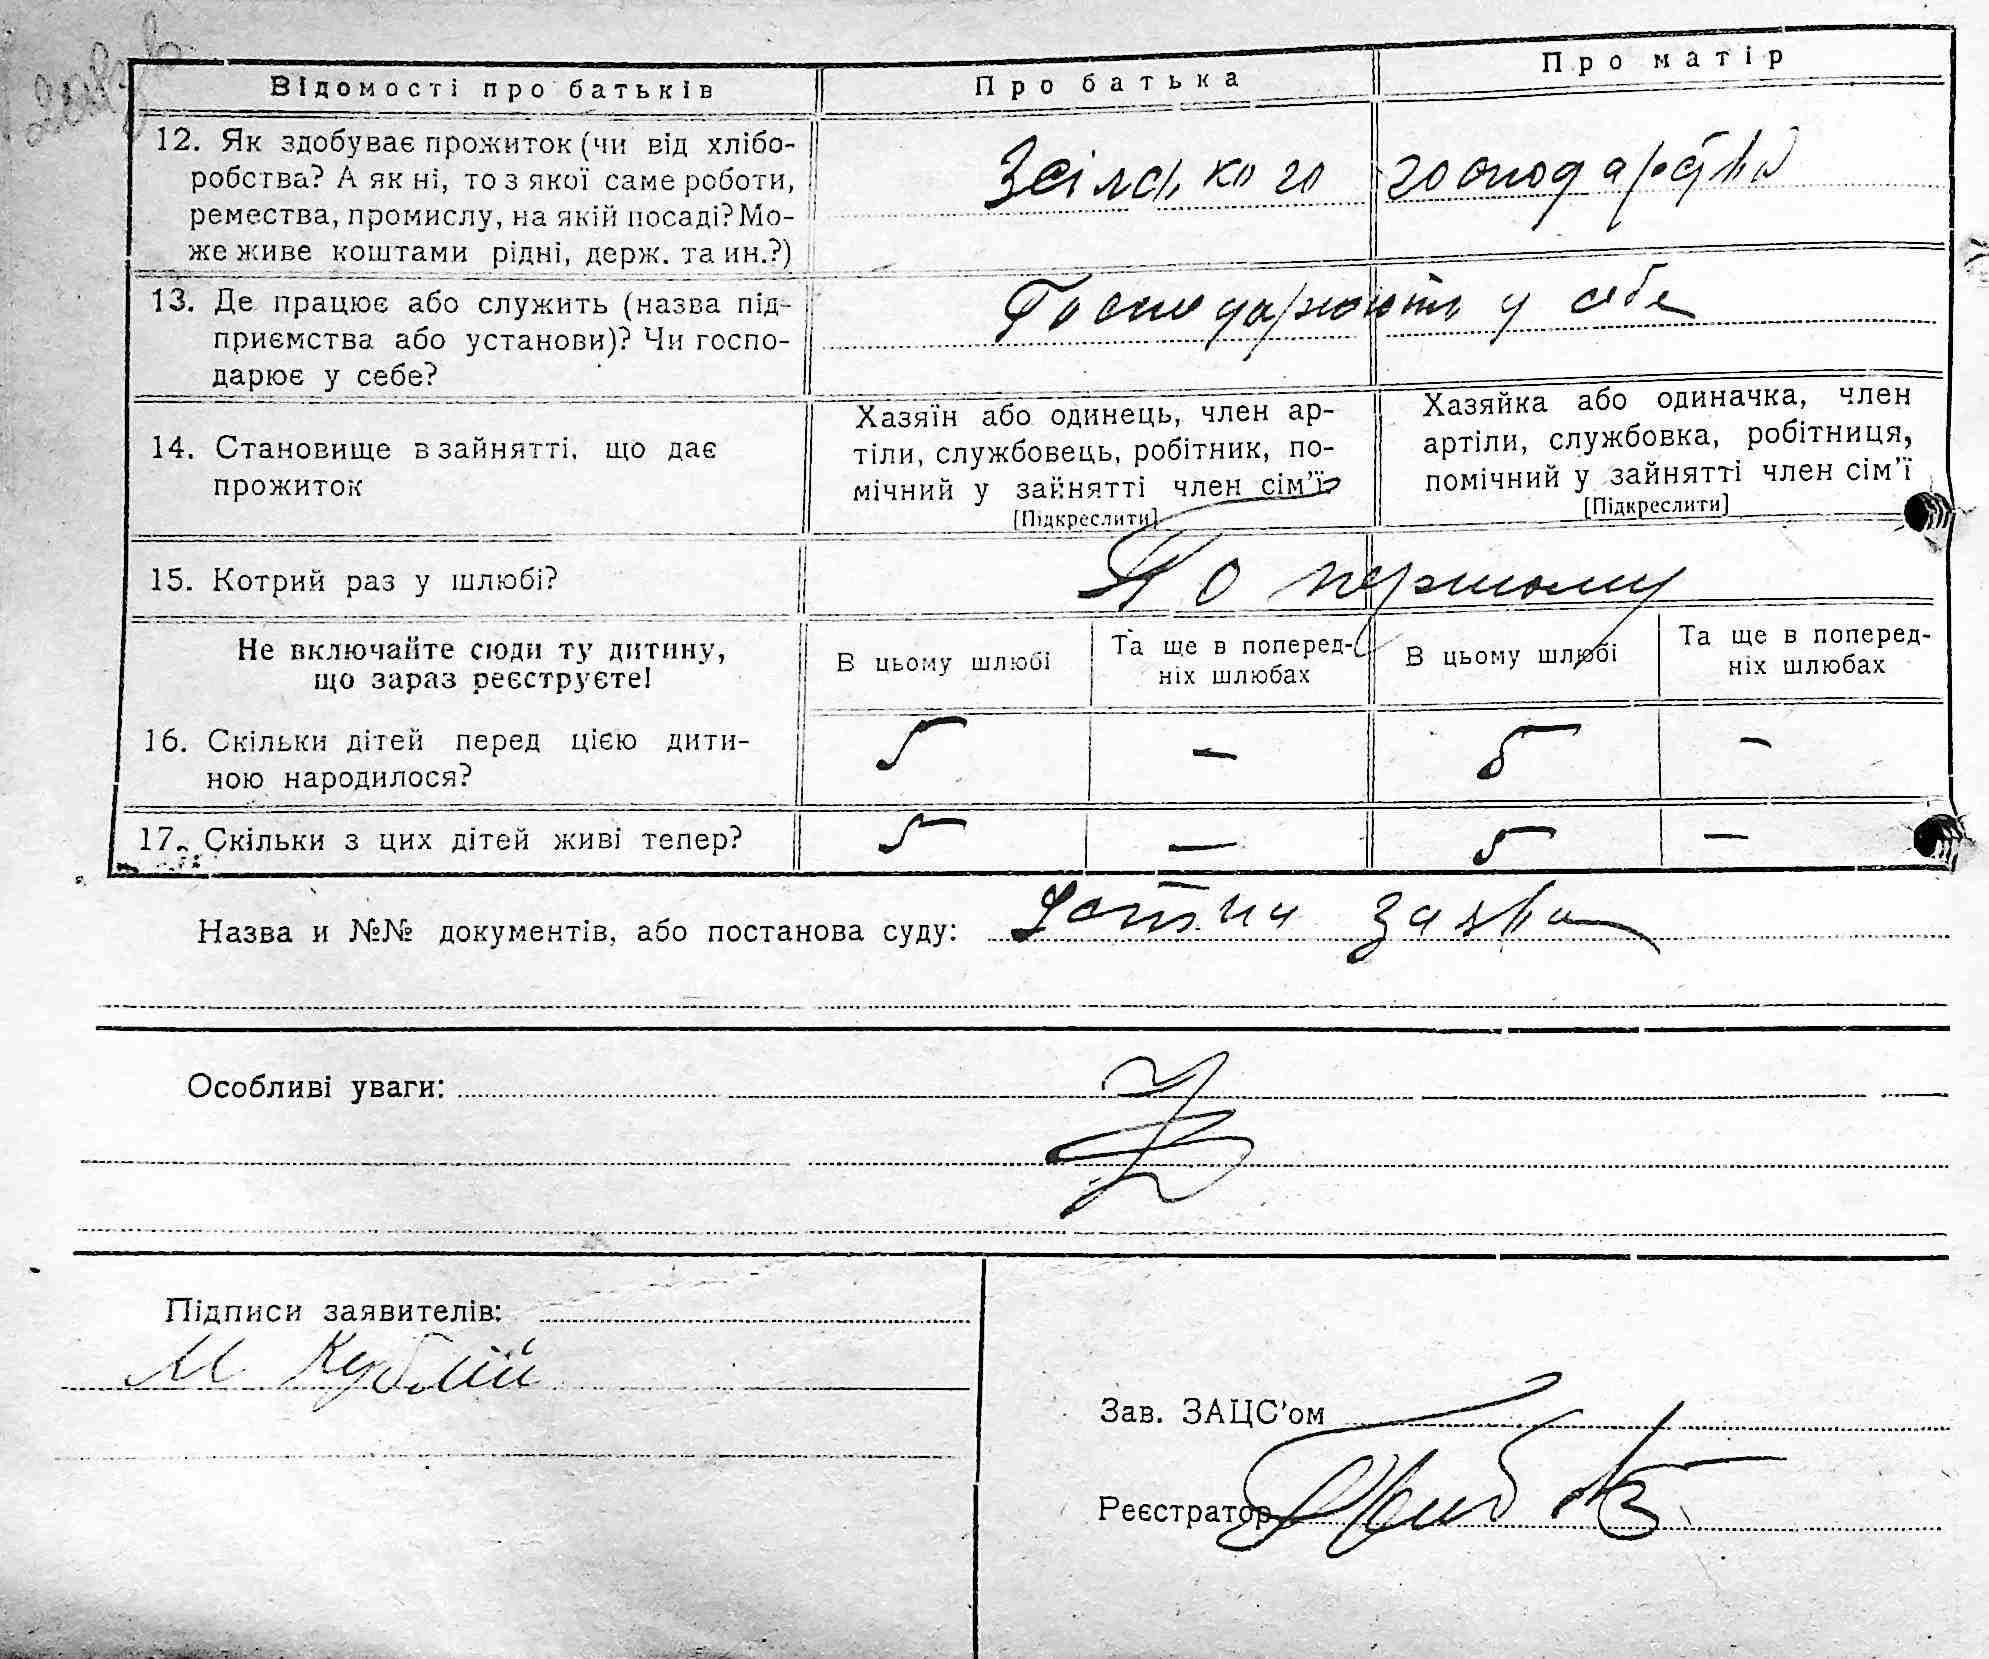 Відомості про батьків Про батька Про матір
12. Як здобуває прожиток (чи від хлібо-
робства? А як ні, то з якої саме роботи,
ремества, промислу, на якій посаді? Мо-
же живе коштами рідні, держ. та ин.?)
Зсільского господарства
13. Де працює або служить (назва під-
приємства або установи)? Чи госпо-
дарює у себе?
Господарюють у себе
14. Становище в зайнятті, що дає
прожиток
Хазяїн або одинець, член ар-
тіли, службовець, робітник, по-
мічний у зайнятті член сім'ї
[Підкреслити]
Хазяйка або одиначка, член
артіли, службовка, робітниця,
помічний у зайнятті член сім'ї
[Підкреслити]
15. Котрий раз у шлюбі?
По першому
Не включайте сюди ту дитину,
що зараз реєструєте!
В цьому шлюбі
Та ще в поперед-
ніх шлюбах
В цьому шлюбі
Та ще в поперед-
ніх шлюбах
16. Скільки дітей перед цією дити-
ною народилося?
5 — 5 —
17. Скільки з цих дітей живі тепер? 5 — 5 —
Назва и №№ документів, або постанова суду: Устна заява
Особливі уваги:
Підписи заявителів:
М Кублій
Зав. ЗАЦС'ом
Реєстратор